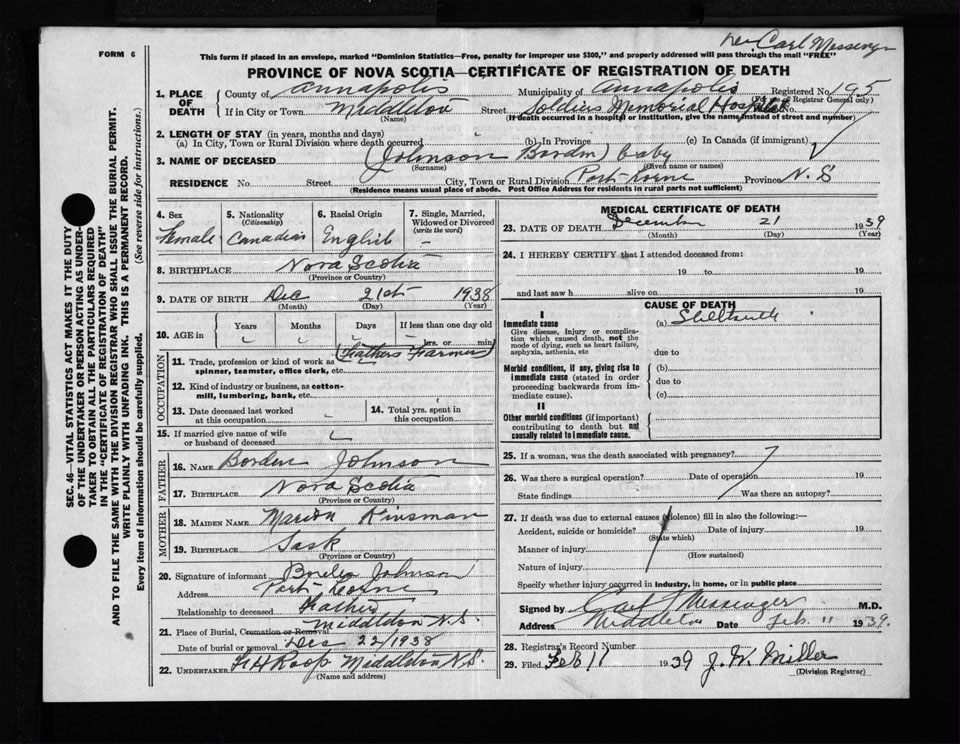 FORM 6
Dr Carl Messenger
This form if placed in an envelope, marked "Dominion Statistics—Free, penalty for improper use $300," and properly addressed will pass through the mail "FREE"
PROVINCE OF NOVA SCOTIA—CERTIFICATE OF REGISTRATION OF DEATH
1. PLACE OF DEATH
County of Annapolis Municipality of Annapolis Registered No. 195
(For use of Registrar General only)
If in City or Town Middleton Street Soldiers Memorial Hospital No.
(Name) (If death occurred in a hospital or institution, give the name instead of street and number)
2. LENGTH OF STAY (in years, months and days)
(a) In City, Town or Rural Division where death occurred (b) In Province (c) In Canada (if immigrant)
3. NAME OF DECEASED (Johnson Borden) baby
(Surname) (Given name or names)
RESIDENCE No. Street City, Town or Rural Division Port Lorne Province N. S
(Residence means usual place of abode. Post Office Address for residents in rural parts not sufficient)
4. Sex Female
5. Nationality (Citizenship) Canadian
6. Racial Origin English
7. Single, Married, Widowed or Divorced (write the word) -
8. BIRTHPLACE Nova Scotia
(Province or Country)
9. DATE OF BIRTH Dec 21st 1938
(Month) (Day) (Year)
10. AGE in Years Months Days If less than one day old
hrs. or min.
(Fathers Farmer)
OCCUPATION
11. Trade, profession or kind of work as spinner, teamster, office clerk, etc.
12. Kind of industry or business, as cotton-mill, lumbering, bank, etc.
13. Date deceased last worked at this occupation
14. Total yrs. spent in this occupation
15. If married give name of wife or husband of deceased
FATHER
16. NAME Borden Johnson
17. BIRTHPLACE Nova Scotia
(Province or Country)
MOTHER
18. MAIDEN NAME Marion Kinsman
19. BIRTHPLACE Sask
(Province or Country)
20. Signature of informant Borden Johnson
Address Port Lorne
Relationship to deceased Father
21. Place of Burial, Cremation or Removal Middleton N.S.
Date of burial or removal Dec 22/1938
22. UNDERTAKER F H Roop Middleton N.S.
(Name and address)
MEDICAL CERTIFICATE OF DEATH
23. DATE OF DEATH December 21 1939
(Month) (Day) (Year)
24. I HEREBY CERTIFY that I attended deceased from:
19 to 19
and last saw h alive on 19
CAUSE OF DEATH
I
Immediate cause (a) Stillbirth
Give disease, injury or complication which caused death, not the mode of dying, such as heart failure, asphyxia, asthenia, etc
due to
Morbid conditions, if any, giving rise to immediate cause (stated in order proceeding backwards from immediate cause).
(b)
due to
(c)
II
Other morbid conditions (if important) contributing to death but not causally related to immediate cause.
25. If a woman, was the death associated with pregnancy?
26. Was there a surgical operation? Date of operation 19
State findings Was there an autopsy?
27. If death was due to external causes (violence) fill in also the following:—
Accident, suicide or homicide? Date of injury 19
(State which)
Manner of injury
(How sustained)
Nature of injury
Specify whether injury occurred in industry, in home, or in public place
Signed by Carl F Messenger M.D.
Address Middleton Date Feb. 11 1939.
28. Registrar's Record Number
29. Filed Feb 11 1939 J. W. Miller
(Division Registrar)
SEC. 46—VITAL STATISTICS ACT MAKES IT THE DUTY
OF THE UNDERTAKER OR PERSON ACTING AS UNDER-
TAKER TO OBTAIN ALL THE PARTICULARS REQUIRED
IN THE "CERTIFICATE OF REGISTRATION OF DEATH"
AND TO FILE THE SAME WITH THE DIVISION REGISTRAR WHO SHALL ISSUE THE BURIAL PERMIT.
WRITE PLAINLY WITH UNFADING INK. THIS IS A PERMANENT RECORD.
Every item of information should be carefully supplied. (See reverse side for instructions.)